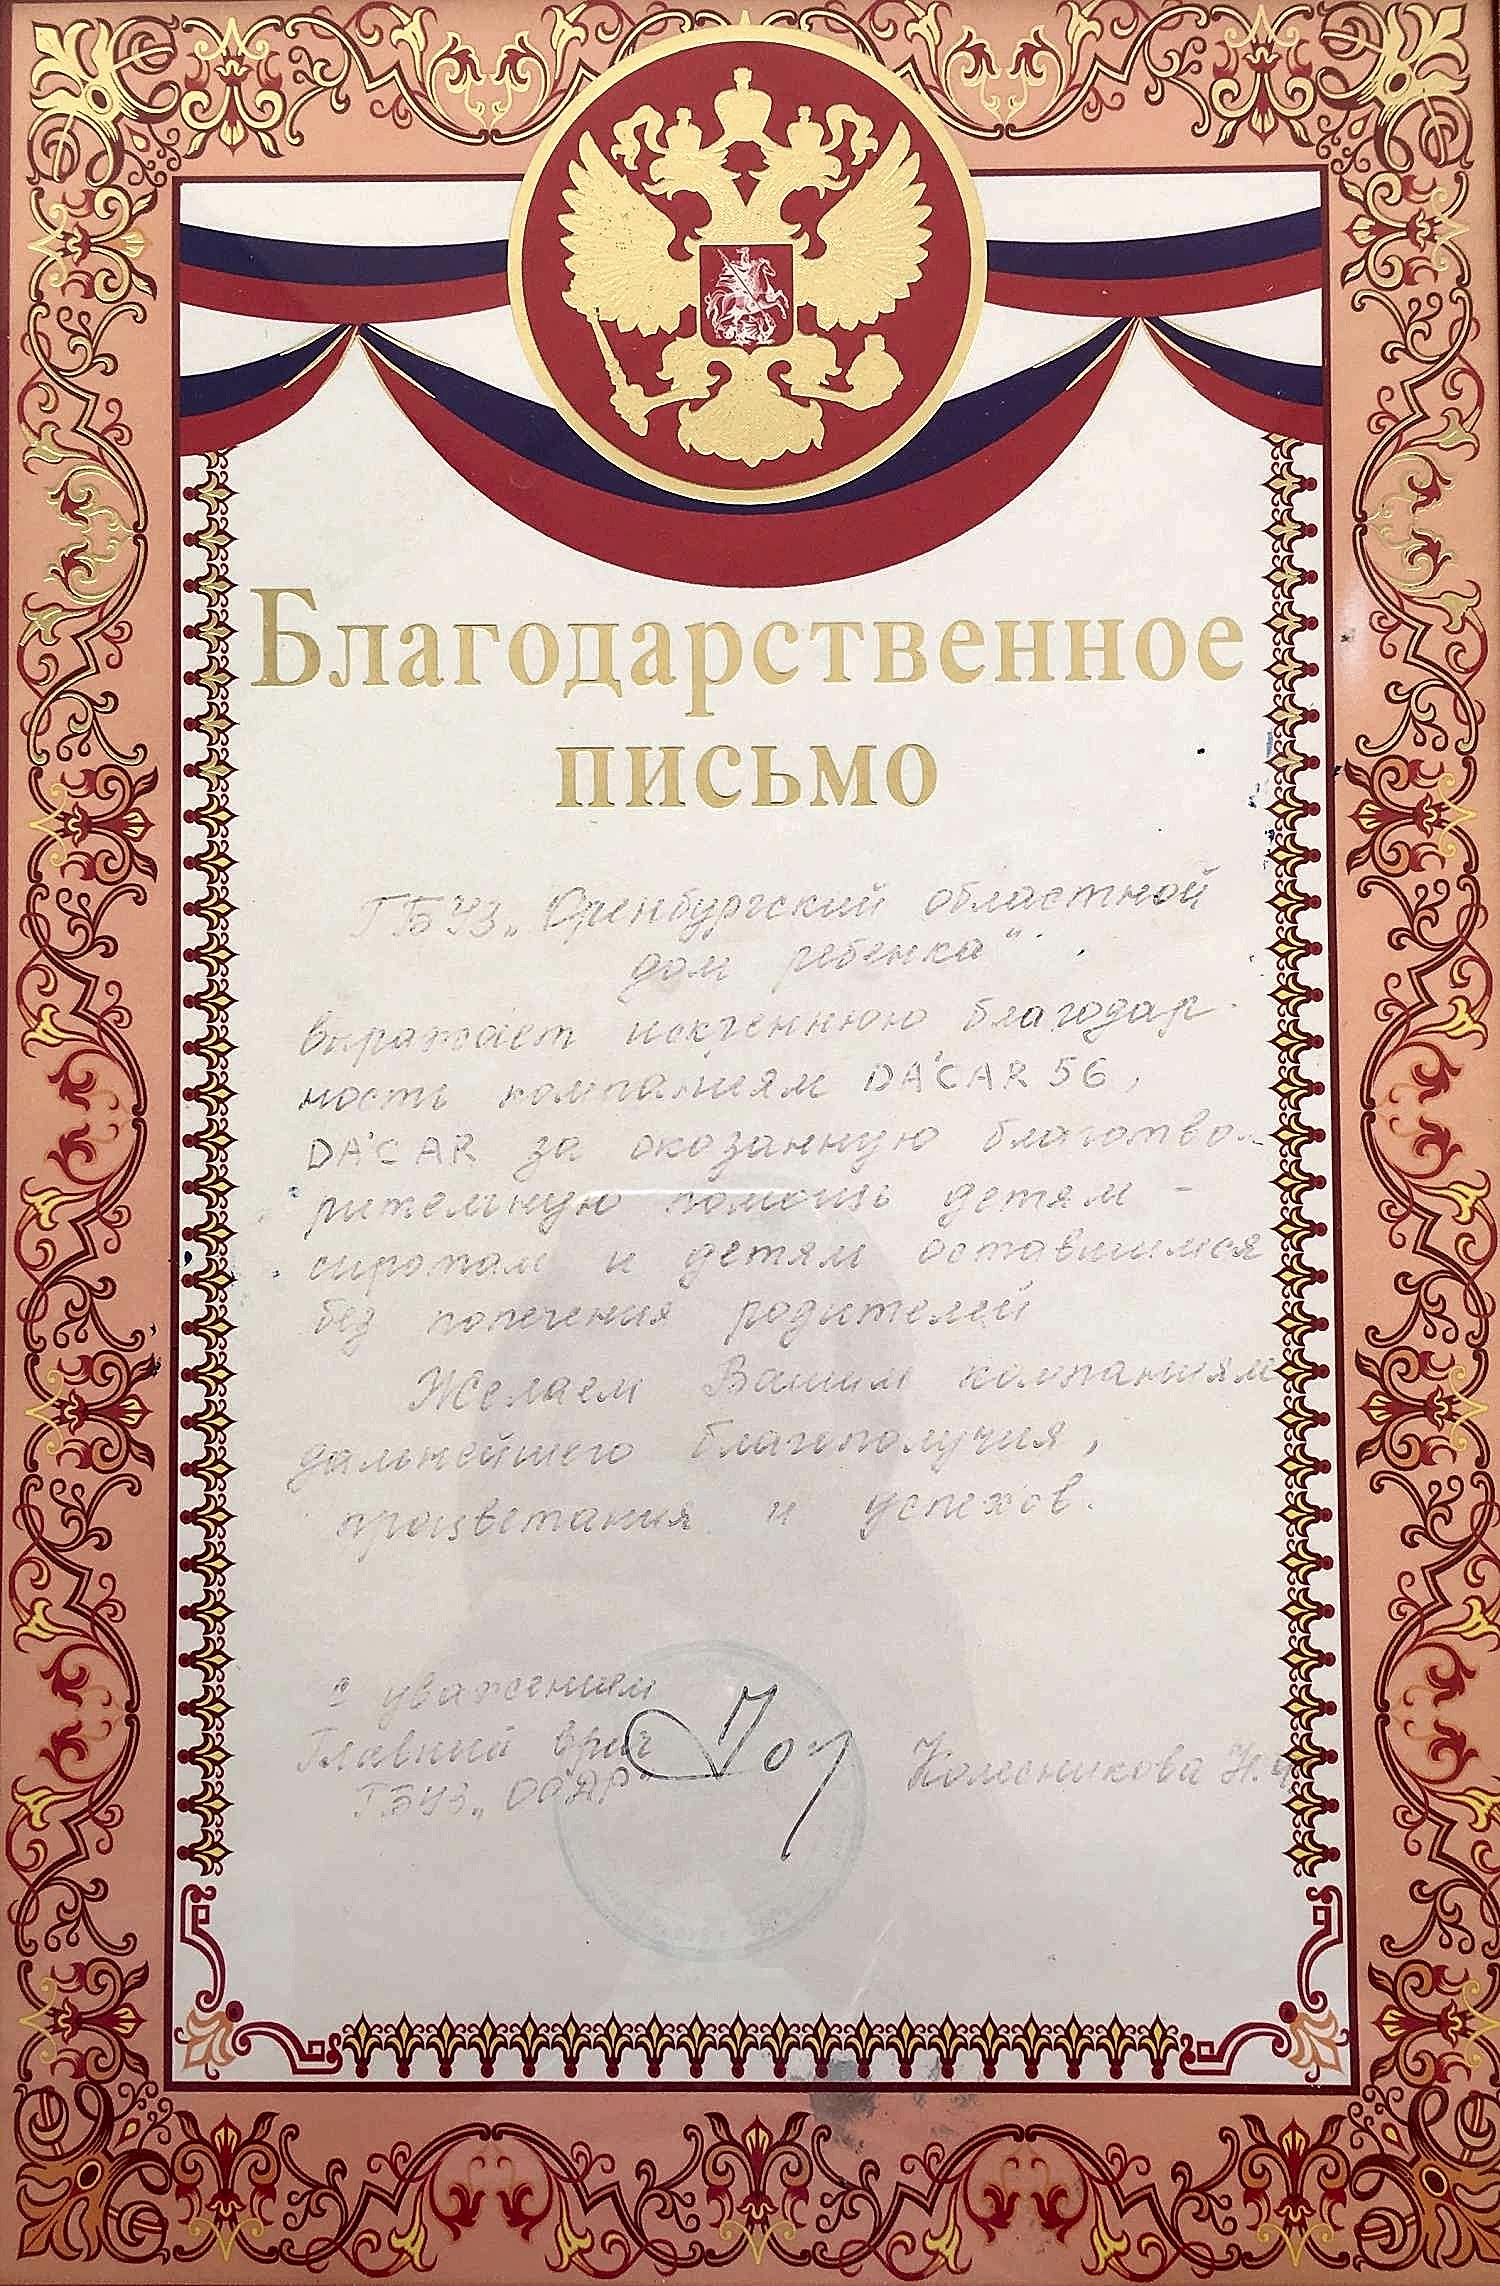 Благодарственное
письмо
ГБУЗ „Оренбургский областной
дом ребенка"
выражает искреннюю благодар-
ность компаниям DA'CAR 56,
DA'CAR за оказанную благотво-
рительную помощь детям -
сиротам и детям оставшимся
без попечения родителей
Желаем Вашим компаниям
дальнейшего благополучия,
процветания и успехов.
с уважением
Главный врач
ГБУЗ „ООДР"
Колесникова Н.Ч